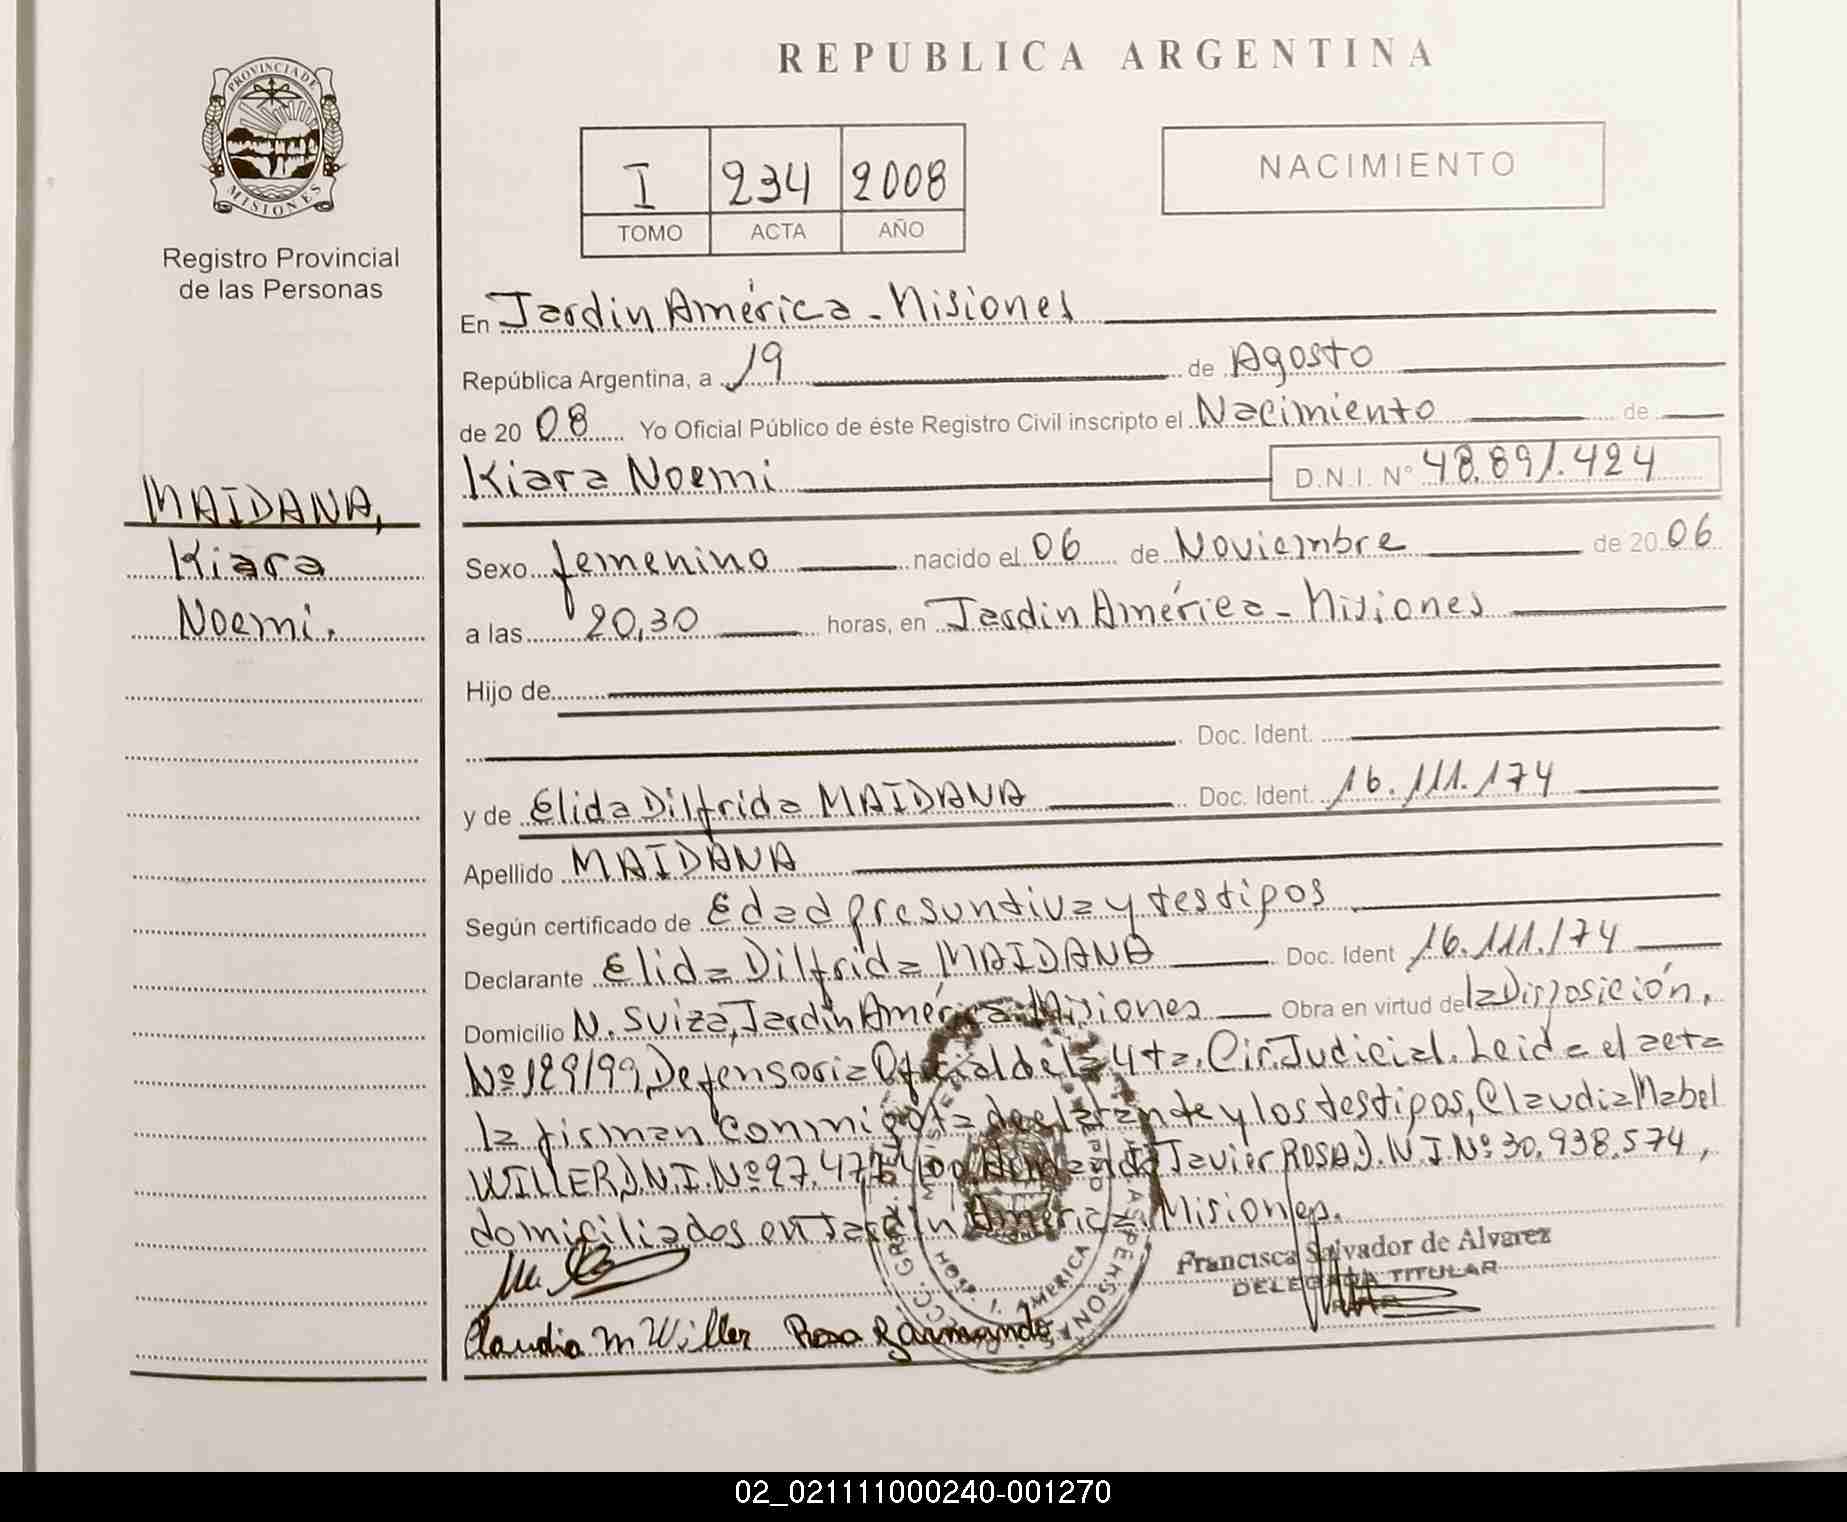 REPUBLICA ARGENTINA
PROVINCIA DE
MISIONES
Registro Provincial
de las Personas
I 234 2008
TOMO ACTA AÑO
NACIMIENTO
MAIDANA,
Kiara
Noemi.
En Jardin América - Misiones
República Argentina, a 19 de Agosto
de 20 08 Yo Oficial Público de éste Registro Civil inscripto el Nacimiento de
Kiara Noemi D.N.I. N° 48.891.424
Sexo femenino nacido el 06 de Noviembre de 20 06
a las 20,30 horas, en Jardin América - Misiones
Hijo de
Doc. Ident.
y de Elida Dilfrida MAIDANA Doc. Ident. 16.111.174
Apellido MAIDANA
Según certificado de Edad presuntiva y testigos
Declarante Elida Dilfrida MAIDANA Doc. Ident 16.111.174
Domicilio N. Suiza, Jardin América Misiones Obra en virtud de la Disposición,
Nº 129/99, Defensoria Oficial de la 4ta. Cir. Judicial. Leida el acta
la firman conmigo la declarante y los testigos, Claudia Mabel
WILLER D.N.I. Nº 27.477.400 Javier ROSA D.N.I. Nº 30.938.574,
domiciliados en Jardin América, Misiones.
Francisca Salvador de Alvarez
DELEGADA TITULAR
Claudia M Willer Rosa Armando
02_021111000240-001270